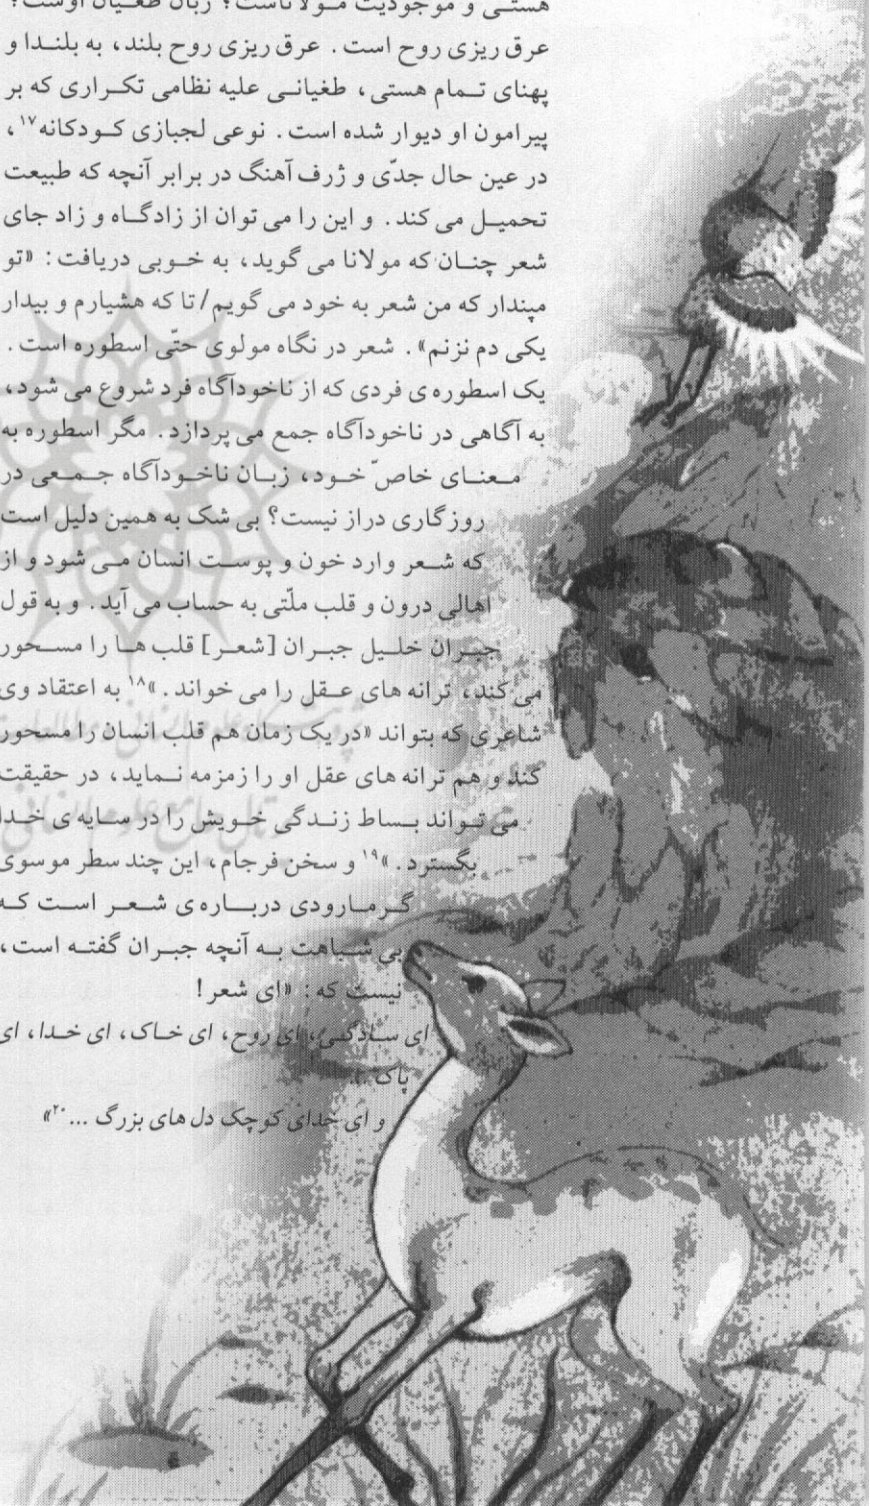 هستی و موجودیت مولاناست؟ زبان طغیان اوست؟
عرق ریزی روح است. عرق ریزی روح بلند، به بلندا و
پهنای تمام هستی، طغیانی علیه نظامی تکراری که بر
پیرامون او دیوار شده است. نوعی لجبازی کودکانه۱۷،
در عین حال جدّی و ژرف آهنگ در برابر آنچه که طبیعت
تحمیل می کند. و این را می توان از زادگاه و زاد جای
شعر چنان که مولانا می گوید، به خوبی دریافت: «تو
مپندار که من شعر به خود می گویم/ تا که هشیارم و بیدار
یکی دم نزنم». شعر در نگاه مولوی حتّی اسطوره است.
یک اسطوره ی فردی که از ناخودآگاه فرد شروع می شود،
به آگاهی در ناخودآگاه جمع می پردازد. مگر اسطوره به
معنای خاصّ خود، زبان ناخودآگاه جمعی در
روزگاری دراز نیست؟ بی شک به همین دلیل است
که شعر وارد خون و پوست انسان می شود و از
اهالی درون و قلب ملّتی به حساب می آید. و به قول
جبران خلیل جبران [شعر] قلب ها را مسحور
می کند، ترانه های عقل را می خواند.»۱۸ به اعتقاد وی
شاعری که بتواند «در یک زمان هم قلب انسان را مسحور
کند و هم ترانه های عقل او را زمزمه نماید، در حقیقت
می تواند بساط زندگی خویش را در سایه ی خدا
بگسترد.»۱۹ و سخن فرجام، این چند سطر موسوی
گرمارودی درباره ی شعر است که
بی شباهت به آنچه جبران گفته است،
نیست که: «ای شعر!
ای سادگی، ای روح، ای خاک، ای خدا، ای
پاک...
و ای خدای کوچک دل های بزرگ ...۲۰»
پژوهشگاه علوم انسانی و مطالعات